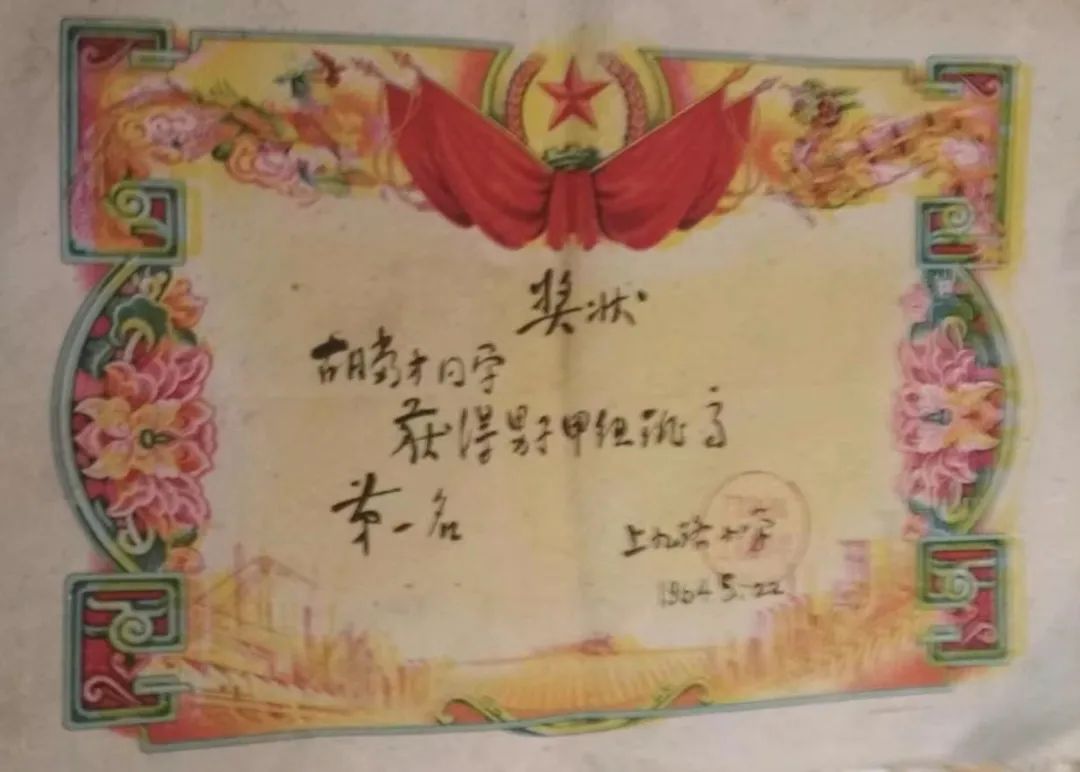 奖状
胡尚才同学
获得男子甲组跳高
第一名
上九路小学
1964.5.22